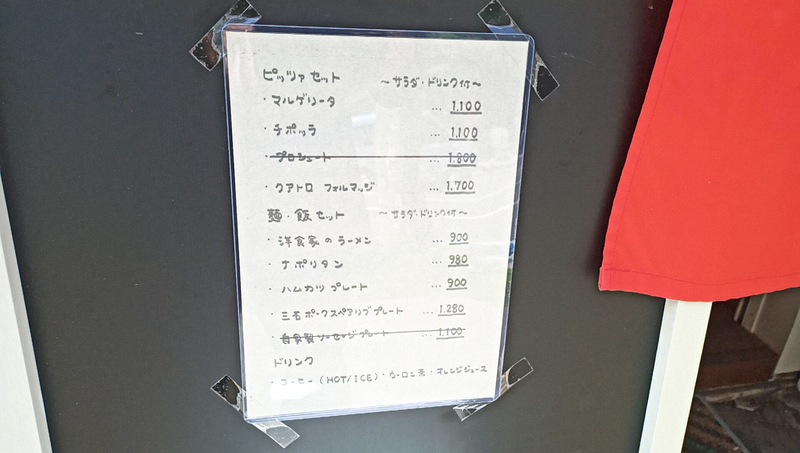 ピッツァセット 〜サラダ・ドリンク付〜
・マルゲリータ … 1,100
・チポッラ … 1,100
・プロシュート … 1,800
・クアトロ フォルマッジ … 1,700
麺・飯セット 〜サラダ・ドリンク付〜
・洋食家のラーメン … 900
・ナポリタン … 980
・ハムカツプレート … 900
・三元ポークスペアリブプレート … 1,280
・自家製ソーセージプレート … 1,100
ドリンク
・コーヒー（HOT/ICE）・ウーロン茶・オレンジジュース